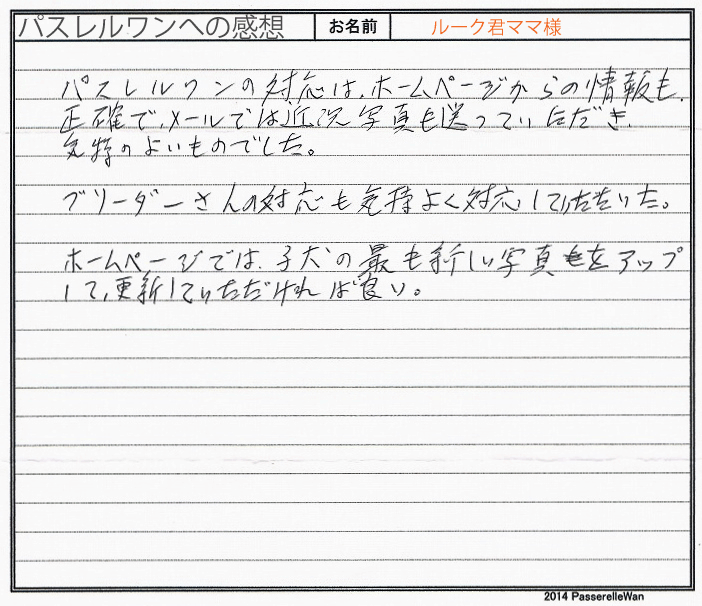 パスレルワンへの感想 お名前 ルーク君ママ様
パスレルワンの対応は、ホームページからの情報も、
正確で、メールでは近況写真も送っていただき、
気持のよいものでした。
ブリーダーさんの対応も気持よく対応していただいた。
ホームページでは、子犬の最も新しい写真をアップ
して、更新していただければ良い。
2014 PasserelleWan